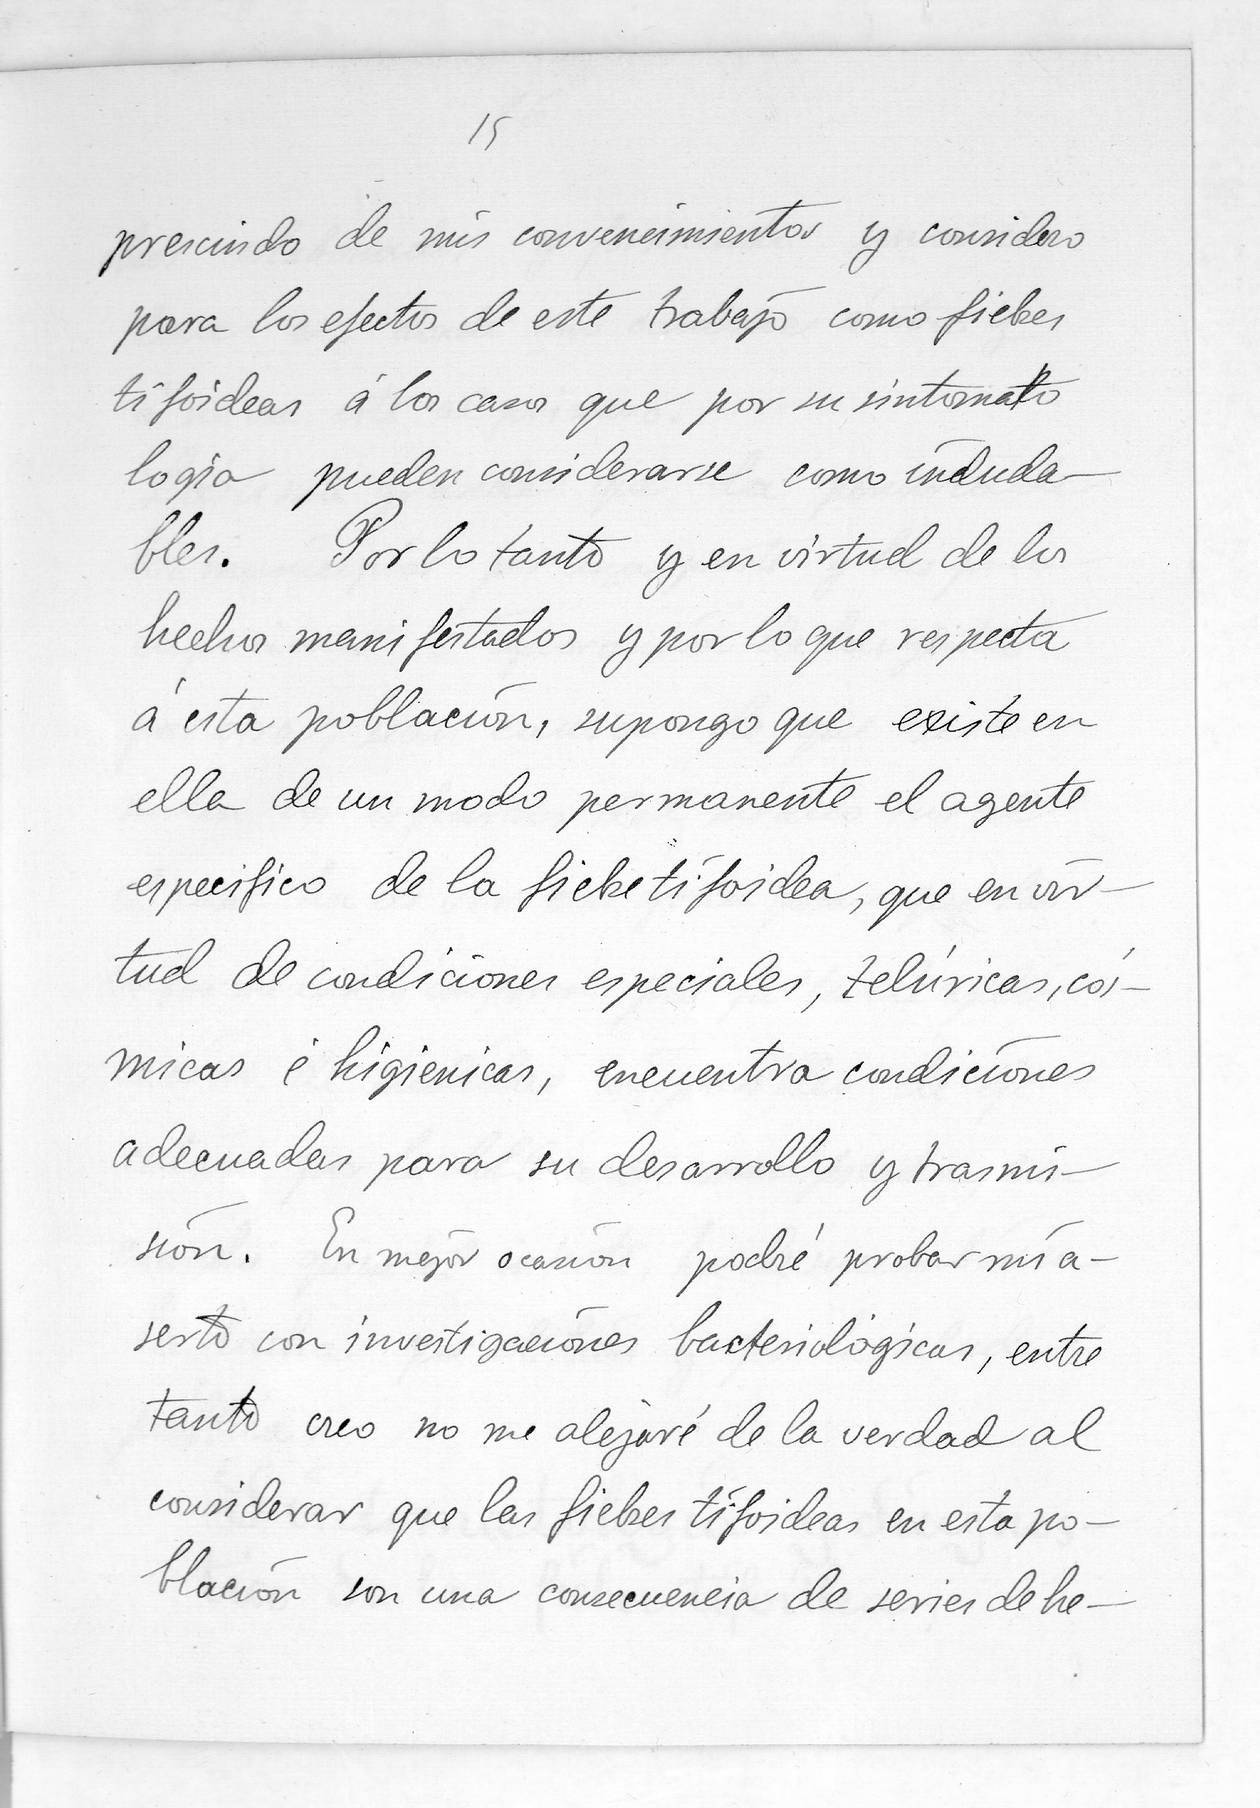 15
prescindo de mis convencimientos y considero
para los efectos de este trabajo como fiebres
tifoideas á los casos que por su sintomato
logia pueden considerarse como induda-
bles. Por lo tanto y en virtud de los
hechos manifestados y por lo que respecta
á esta población, supongo que existe en
ella de un modo permanente el agente
especifico de la fiebre tifoidea, que en vir-
tud de condiciones especiales, telúricas, cós-
micas é higienicas, encuentra condiciones
adecuadas para su desarrollo y trasmi-
sión. En mejor ocasión podré probar mi a-
serto con investigaciones bacteriológicas, entre
tanto creo no me alejaré de la verdad al
considerar que las fiebres tifoideas en esta po-
blación son una consecuencia de series de he-